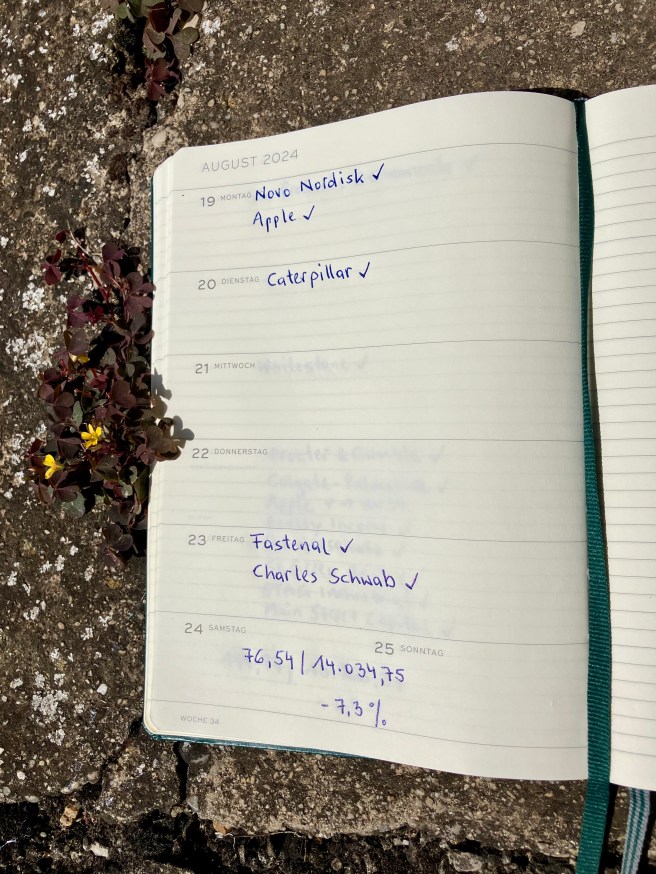 AUGUST 2024
19 MONTAG Novo Nordisk ✓
Apple ✓
20 DIENSTAG Caterpillar ✓
21 MITTWOCH
22 DONNERSTAG
23 FREITAG Fastenal ✓
Charles Schwab ✓
24 SAMSTAG
25 SONNTAG
76,54 | 14.034,75
- 7,3 %
WOCHE 34